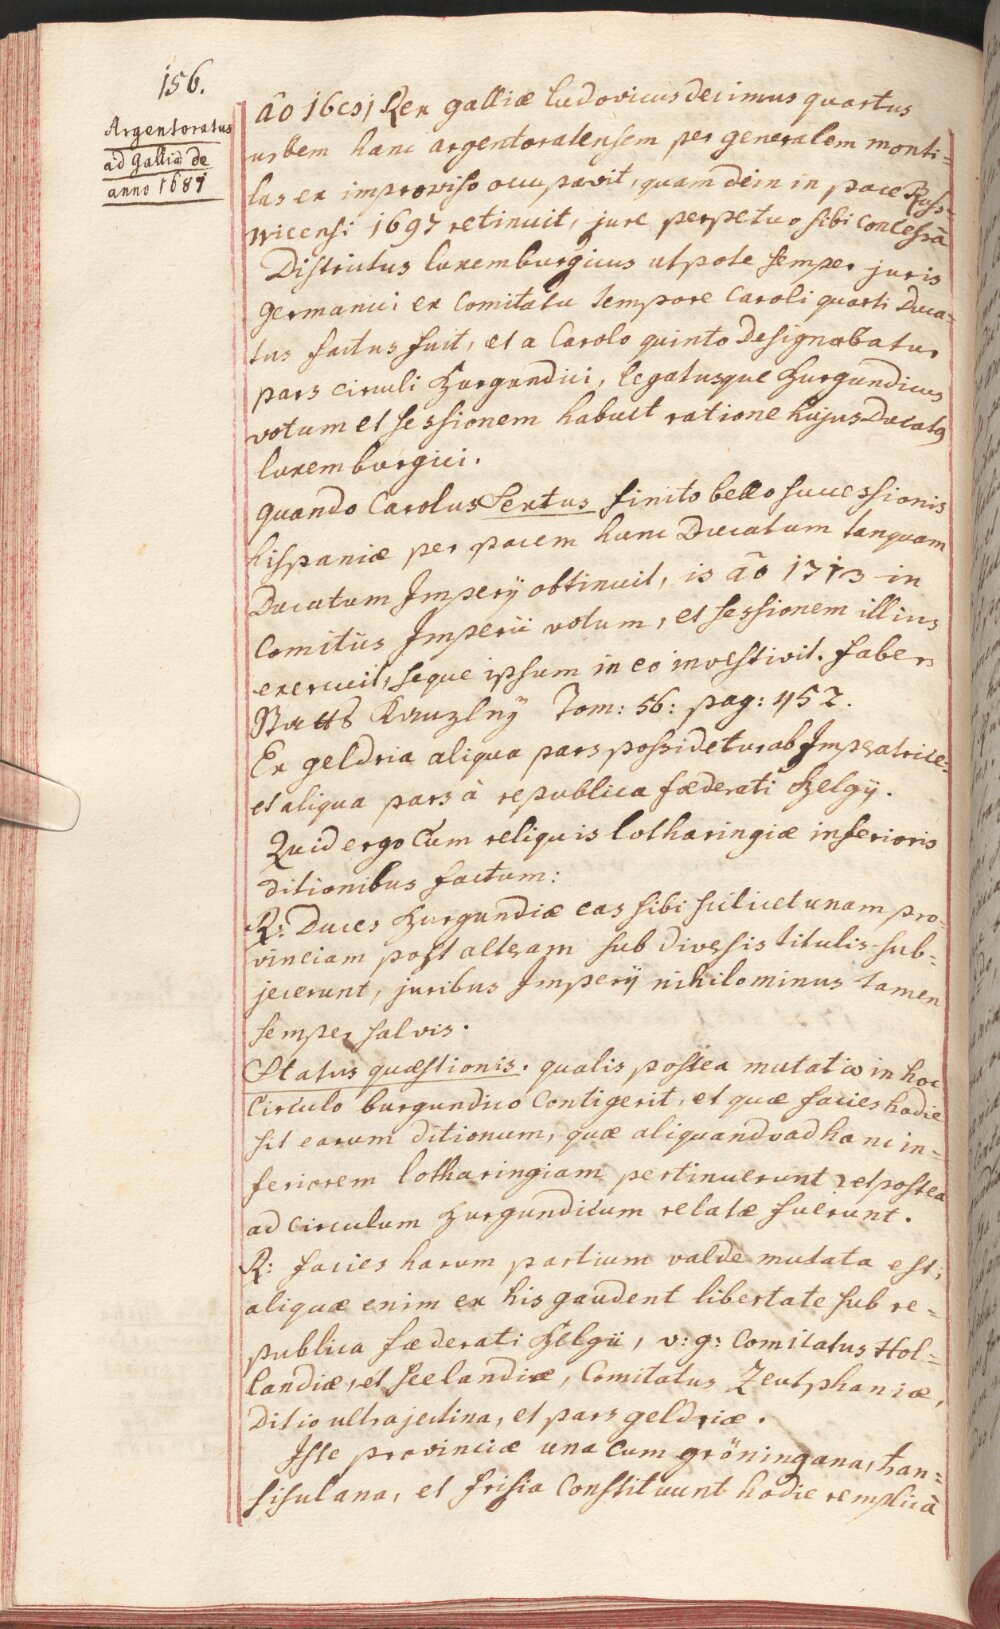 156.
Argentoratus
ad Galliã de
anno 1681
aõ 1681 Rex galliæ ludovicus decimus quartus
urbem hanc argentoratensem per generalem monti-
las ex improviso occupavit, quam dein in pace Rys-
wicensi 1697 retinuit, jure perpetuo sibi concessã
Districtus luxemburgicus utpote semper juris
germanici ex Comitatu tempore Caroli quarti Duca-
tus factus fuit, et a Carolo quinto designabatur
pars circuli Burgundici, legatusque Burgundicus
votum et sessionem habuit ratione hujus Ducatq
luxemburgici.
quando Carolus Sextus finito bello successionis
hispaniæ per pacem hunc Ducatum tanquam
Ducatum Imperÿ obtinuit, is aõ 1713 in
Comitÿs Imperii votum, et sessionem illius
exercuit, seque ipsum in eo investivit. faber
Staatts Kanzlÿ Tom: 56: pag: 452.
Ex geldria aliqua pars possidetur ab Imperatrice-
et aliqua pars à republica fœderati Belgÿ.
Quid ergo Cum reliquis lotharingiæ inferioris
ditionibus factum:
R: Duces Burgundiæ eas sibi scilicet unam pro-
vinciam post alteram sub diversis titulis sub-
jecerunt, juribus Imperÿ nihilominus tamen
semper salvis.
Status quæstionis. qualis postea mutatio in hoc
Circulo burgundico Contigerit, et quæ facies hodie
sit earum ditionum, quæ aliquando ad hanc in-
feriorem lotharingiam pertinuerunt et postea
ad circulum Burgundicum relatæ fuerunt.
R: facies harum partium valde mutata est;
aliquæ enim ex his gaudent libertate sub re-
publica fœderati Belgii, v: g: Comitatus Hol-
landiæ, et Seelandiæ, Comitatus Zeutphaniæ,
Ditio ultrajectina, et pars geldriæ.
Istæ provinciæ una Cum gröningana, tran-
sisulana, et frisia Constituunt hodie remplicã